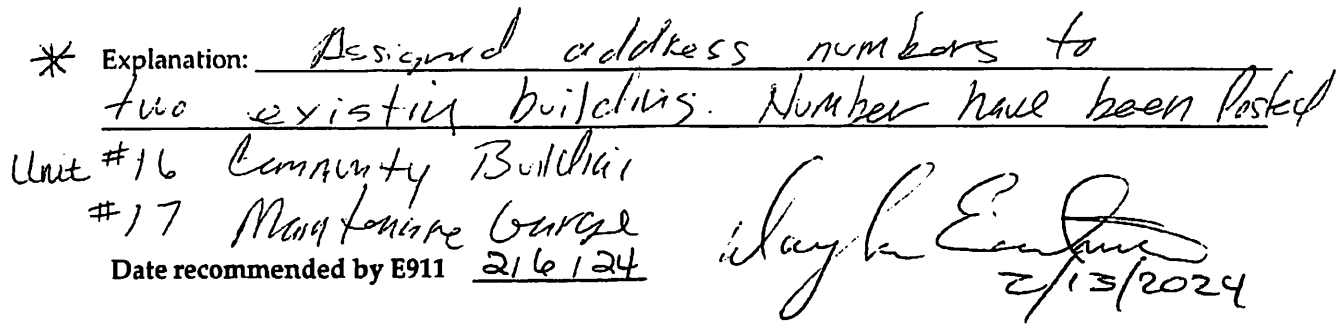 * Explanation: Assigned address numbers to
two existin building. Number have been Posted
Unit #16 Community Building
#17 Maintenance Garage
Date recommended by E911 2/6/24
2/13/2024